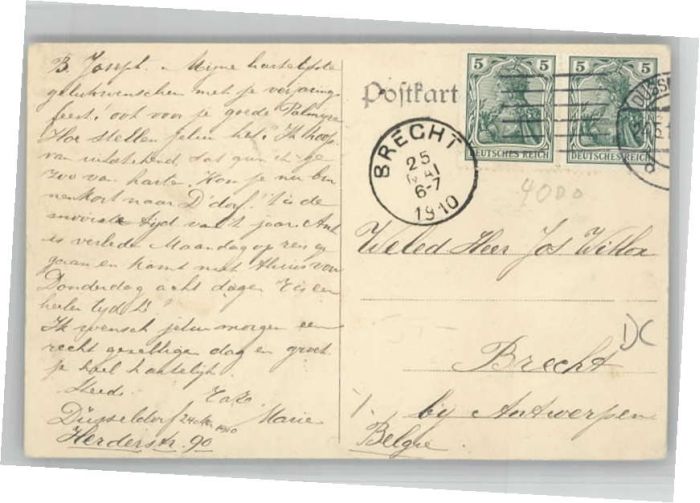 B. Joseph. Mijne hartelijkste
gelukwenschen met je verjarings
feest, ook voor je goede Palmyre
Hoe stellen jelui het? Ik hoop
van harte. Kom je nu bin
nenkort naar D'dorf, 't is de
mooiste tijd van 't jaar. Ant
is verleden Maandag op reis ge
gaan en komt met
Donderdag acht dagen 't is een
heelen tijd!
Ik wensch jelui morgen een
recht gezelligen dag en groet
je heel hartelijk.
Steeds
Marie
Düsseldorf 24 Mei 1910
Herderstr. 90
Postkart
5 5 5 5
DEUTSCHES REICH DEUTSCHES REICH
BRECHT
25
MAI
6-7
1910
4000
Weled Heer Jos Willox
DC
Brecht
bij Antwerpen
Belgie